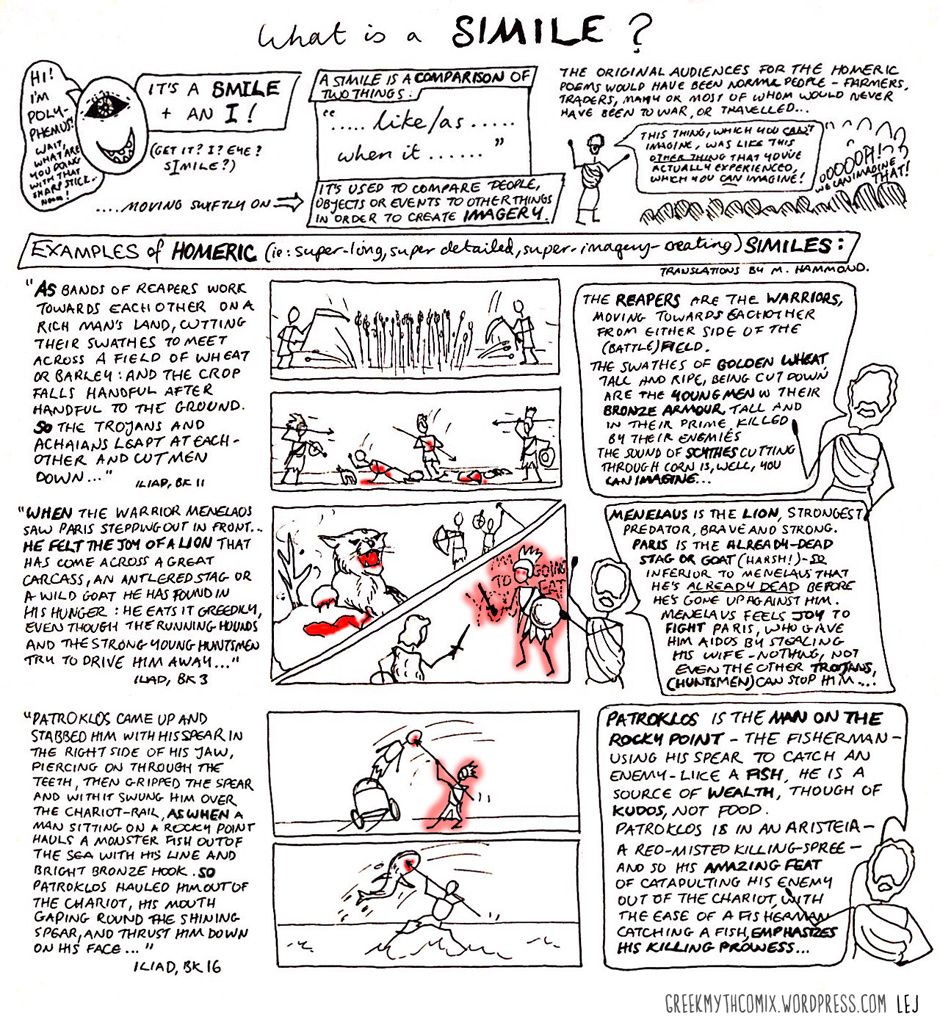 What is a SIMILE?
HI!
I'M
POLY-
PHEMUS!
WAIT,
WHAT ARE
YOU DOING
WITH THAT
SHARP STICK..
NOOO!
IT'S A SMILE
+ AN I!
(GET IT? I? EYE?
SIMILE?)
....MOVING SWIFTLY ON
A SIMILE IS A COMPARISON OF
TWO THINGS:
"..... like/as .....
when it ......"
IT'S USED TO COMPARE PEOPLE,
OBJECTS OR EVENTS TO OTHER THINGS
IN ORDER TO CREATE IMAGERY.
THE ORIGINAL AUDIENCES FOR THE HOMERIC
POEMS WOULD HAVE BEEN NORMAL PEOPLE - FARMERS,
TRADERS, MANY OR MOST OF WHOM WOULD NEVER
HAVE BEEN TO WAR, OR TRAVELLED...
THIS THING, WHICH YOU CAN'T
IMAGINE, WAS LIKE THIS
OTHER THING THAT YOU'VE
ACTUALLY EXPERIENCED,
WHICH YOU CAN IMAGINE!
OOOOH!!
WE CAN IMAGINE
THAT!
EXAMPLES of HOMERIC (ie: super-long, super detailed, super-imagery-creating) SIMILES:
TRANSLATIONS BY M. HAMMOND.
"AS BANDS OF REAPERS WORK
TOWARDS EACH OTHER ON A
RICH MAN'S LAND, CUTTING
THEIR SWATHES TO MEET
ACROSS A FIELD OF WHEAT
OR BARLEY: AND THE CROP
FALLS HANDFUL AFTER
HANDFUL TO THE GROUND.
SO THE TROJANS AND
ACHAIANS LEAPT AT EACH-
OTHER AND CUT MEN
DOWN..."
ILIAD, BK 11
THE REAPERS ARE THE WARRIORS,
MOVING TOWARDS EACHOTHER
FROM EITHER SIDE OF THE
(BATTLE)FIELD.
THE SWATHES OF GOLDEN WHEAT
TALL AND RIPE, BEING CUT DOWN
ARE THE YOUNG MEN IN THEIR
BRONZE ARMOUR, TALL AND
IN THEIR PRIME, KILLED
BY THEIR ENEMIES
THE SOUND OF SCYTHES CUTTING
THROUGH CORN IS, WELL, YOU
CAN IMAGINE...
"WHEN THE WARRIOR MENELAOS
SAW PARIS STEPPING OUT IN FRONT...
HE FELT THE JOY OF A LION THAT
HAS COME ACROSS A GREAT
CARCASS, AN ANTLERED STAG OR
A WILD GOAT HE HAS FOUND IN
HIS HUNGER: HE EATS IT GREEDILY,
EVEN THOUGH THE RUNNING HOUNDS
AND THE STRONG YOUNG HUNTSMEN
TRY TO DRIVE HIM AWAY..."
ILIAD, BK 3
I'M GOING
TO EAT
YOU
MENELAUS IS THE LION, STRONGEST
PREDATOR, BRAVE AND STRONG.
PARIS IS THE ALREADY-DEAD
STAG OR GOAT (HARSH!) - SO
INFERIOR TO MENELAUS THAT
HE'S ALREADY DEAD BEFORE
HE'S GONE UP AGAINST HIM.
MENELAUS FEELS JOY TO
FIGHT PARIS, WHO GAVE
HIM AIDOS BY STEALING
HIS WIFE - NOTHING, NOT
EVEN THE OTHER TROJANS,
(HUNTSMEN) CAN STOP HIM...
"PATROKLOS CAME UP AND
STABBED HIM WITH HIS SPEAR IN
THE RIGHT SIDE OF HIS JAW,
PIERCING ON THROUGH THE
TEETH, THEN GRIPPED THE SPEAR
AND WITH IT SWUNG HIM OVER
THE CHARIOT-RAIL, AS WHEN A
MAN SITTING ON A ROCKY POINT
HAULS A MONSTER FISH OUT OF
THE SEA WITH HIS LINE AND
BRIGHT BRONZE HOOK. SO
PATROKLOS HAULED HIM OUT OF
THE CHARIOT, HIS MOUTH
GAPING ROUND THE SHINING
SPEAR, AND THRUST HIM DOWN
ON HIS FACE..."
ILIAD, BK 16
PATROKLOS IS THE MAN ON THE
ROCKY POINT - THE FISHERMAN -
USING HIS SPEAR TO CATCH AN
ENEMY - LIKE A FISH, HE IS A
SOURCE OF WEALTH, THOUGH OF
KUDOS, NOT FOOD.
PATROKLOS IS IN AN ARISTEIA -
A RED-MISTED KILLING-SPREE -
AND SO HIS AMAZING FEAT
OF CATAPULTING HIS ENEMY
OUT OF THE CHARIOT, WITH
THE EASE OF A FISHERMAN
CATCHING A FISH, EMPHASIZES
HIS KILLING PROWESS...
GREEKMYTHCOMIX.WORDPRESS.COM LEJ